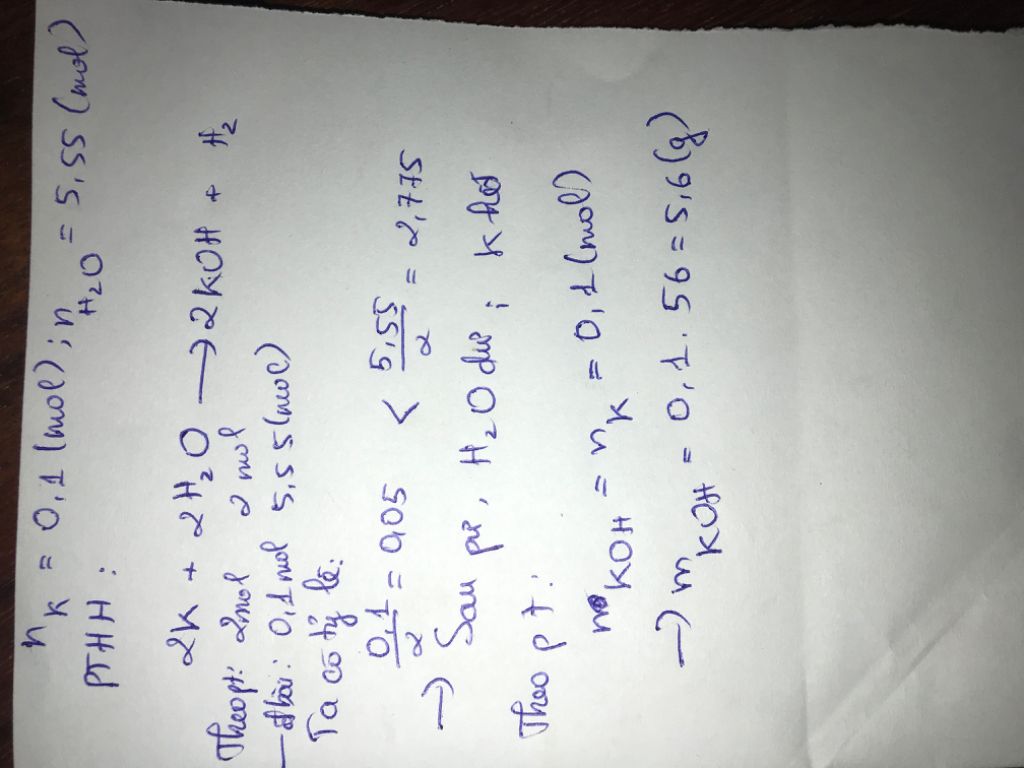 n K = 0,1 (mol) ; n H₂O = 5,55 (mol)
PTHH :
2K + 2H₂O → 2KOH + H₂
Theo pt: 2mol 2 mol
Đbài : 0,1 mol 5,55 (mol)
Ta có tỷ lệ:
0,1/2 = 0,05 < 5,55/2 = 2,775
→ Sau pứ, H₂O dư ; K hết
Theo pt :
n KOH = n K = 0,1 (mol)
→ m KOH = 0,1 . 56 = 5,6 (g)